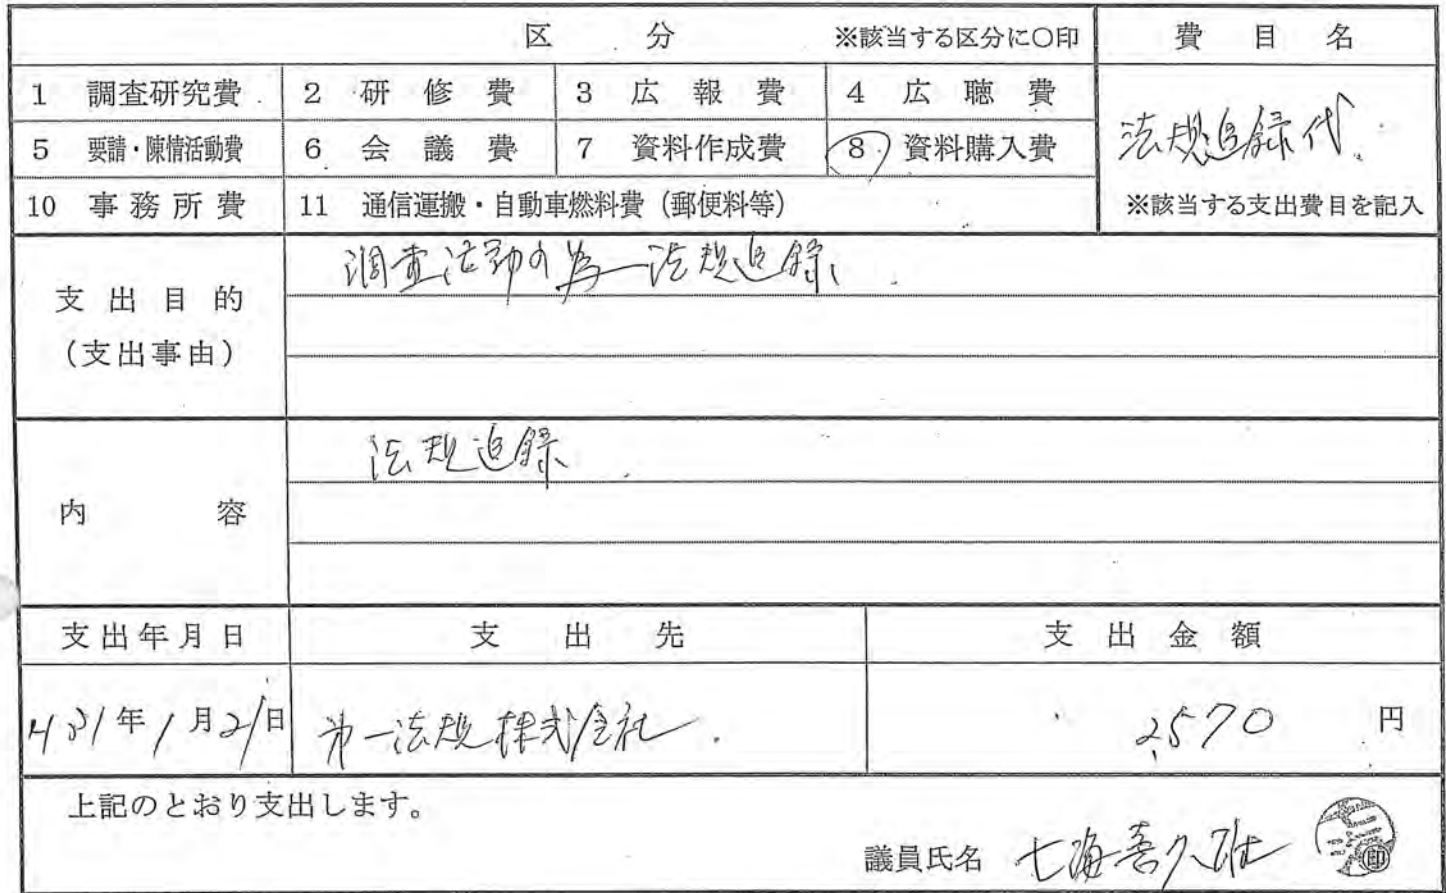 区 分 ※該当する区分に〇印 費 目 名
1 調査研究費 2 研 修 費 3 広 報 費 4 広 聴 費
法規追録代
5 要請・陳情活動費 6 会 議 費 7 資料作成費 8 資料購入費
10 事 務 所 費 11 通信運搬・自動車燃料費（郵便料等） ※該当する支出費目を記入
支 出 目 的
（支出事由）
調査活動の為 法規追録
内 容
法規追録
支出年月日 支 出 先 支 出 金 額
H31年1月21日 第一法規株式会社 2,570 円
上記のとおり支出します。
議員氏名 七海喜久雄 印